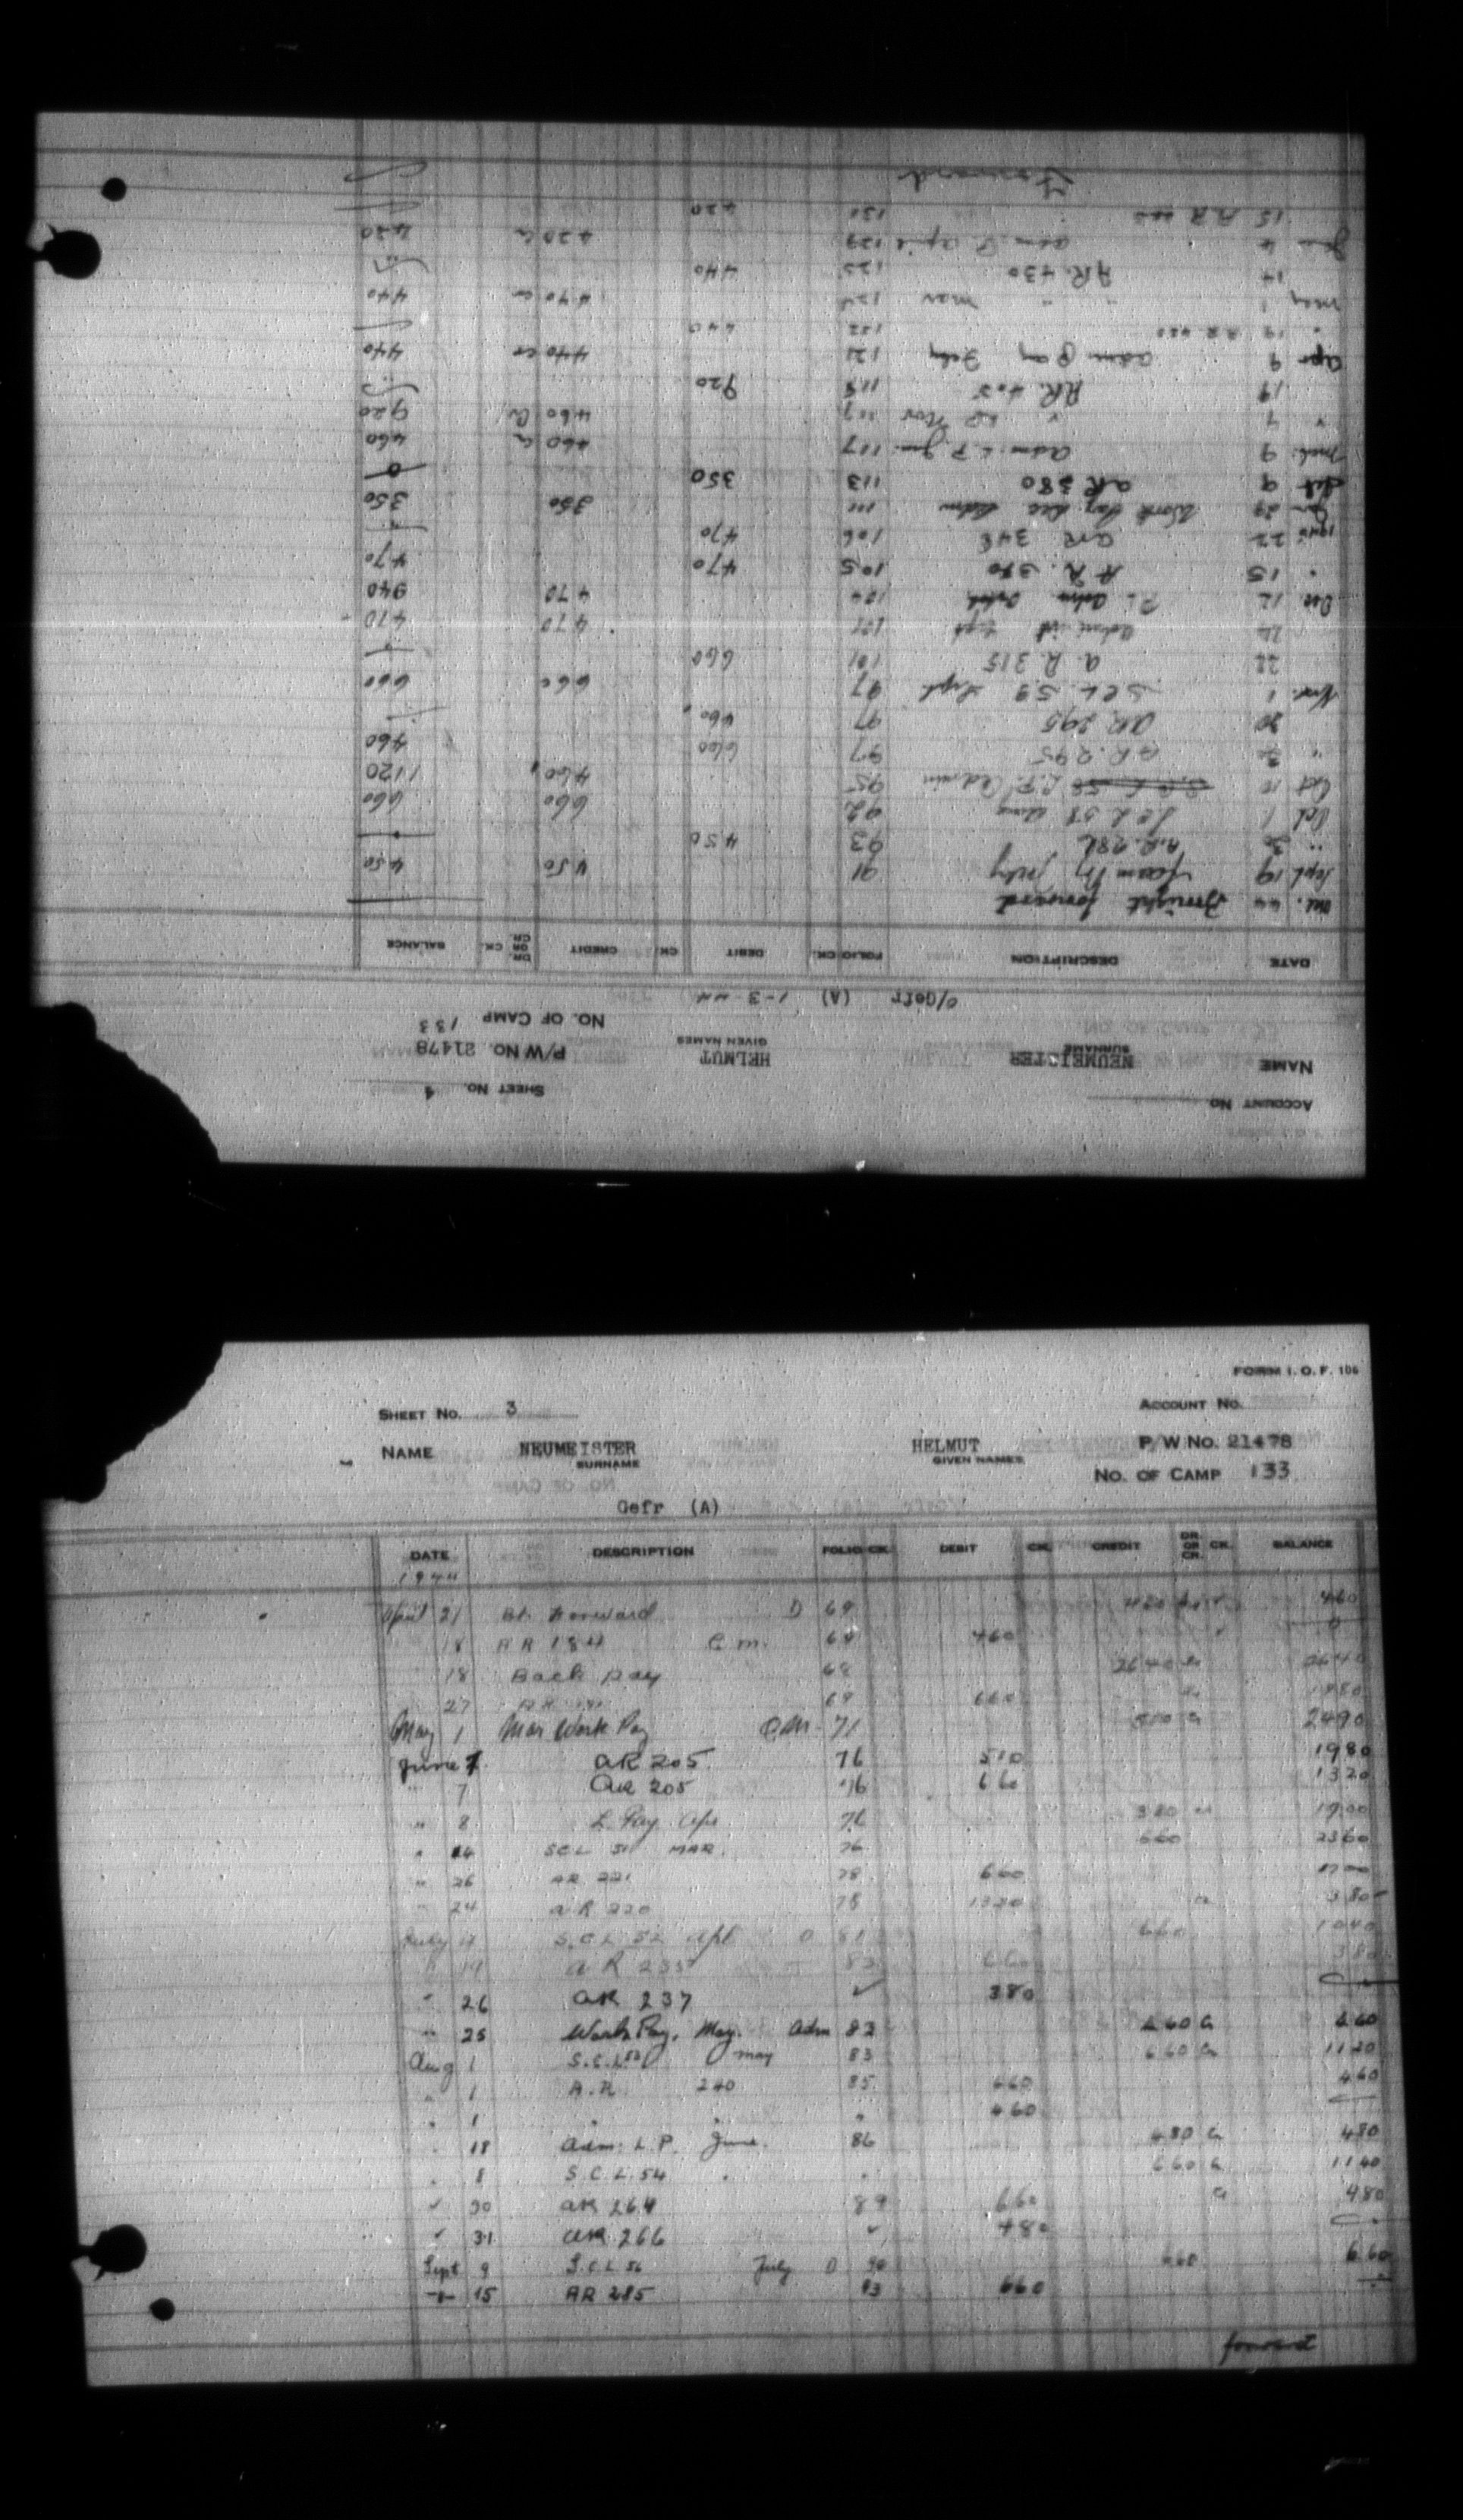 ACCOUNT NO.
SHEET NO. 4
NAME NEUMEISTER HELMUT P/W NO. 21478
SURNAME GIVEN NAMES
NO. OF CAMP 133
O/Gefr (A) 1-3-44
DATE DESCRIPTION FOLIO CK. DEBIT CK. CREDIT DR. OR CR. CK. BALANCE
44 Brought forward
Sept 19 July 91 450 450
" 30 A.R. 286 93 450
Oct 1 SCL 58 Aug 92 660 660
Oct 10 L.P. Admin 95 460 1120
" 30 A.R. 295 97 660 460
30 AR 295 97 460
Nov. 1 SCL 59 Sept 97 660 660
22 A.R. 315 101 660
24 Sept 470 470
Dec 12 104 470 940
" 15 A.R. 105 470 470
1945 22 AR 348 106 470
Jan 29 Work Pay Dec Adm 111 350 350
Feb 9 AR 380 113 350 0
Mch 9 Adm L.P. Jan 117 460 Cr 460
" 9 " LP Nov 117 460 Cr 920
19 A.R. 405 118 920
Apr 9 Adm Pay Feby 121 440 cr 440
" 19 A.R. 420 122 440
May 1 " " Mar 124 440 cr 440
14 A.R. 430 125 440
4 Adm P. April 129 420 Cr 420
15 A.R. 131 420
Forward
FORM I. O. F. 106
SHEET NO. 3 ACCOUNT NO.
NAME NEUMEISTER HELMUT P/W NO. 21478
SURNAME GIVEN NAMES
NO. OF CAMP 133
Gefr (A)
DATE DESCRIPTION FOLIO CK. DEBIT CK. CREDIT DR. OR CR. CK. BALANCE
1944
April 21 Bt. Forward D 69 460
18 AR 184 C.m. 69 460 0
18 Back pay 68 2640 cr 2640
27 AR 69 660 1980
May 1 Mar Work Pay Adm. 71 510 cr 2490
June 7 AR 205 76 510 1980
" 7 AR 205 76 660 1320
" 8 L. Pay Apr 76 380 cr 1700
" 14 SCL 51 MAR. 76 660 2360
" 26 AR 221 78 660 1700
" 24 AR 220 78 1320 cr 380
July 4 S.C.L 52 Apl D 81 660 1040
" 19 AR 235 83 660 380
" 26 AR 237 380
" 25 Work Pay. May. Adm 83 460 Cr 460
Aug 1 S.C.L 53 May 83 660 Cr 1120
" 1 A.R. 240 85 660 460
" 1 " " " 460
" 18 Adm. L.P. June. 86 480 Cr 480
" 8 S.C.L. 54 " 660 Cr 1140
" 30 AR 264 89 660 cr 480
" 31 AR 266 480
Sept 9 S.C.L 56 July D 90 660 660
" 15 AR 285 93 660
forward